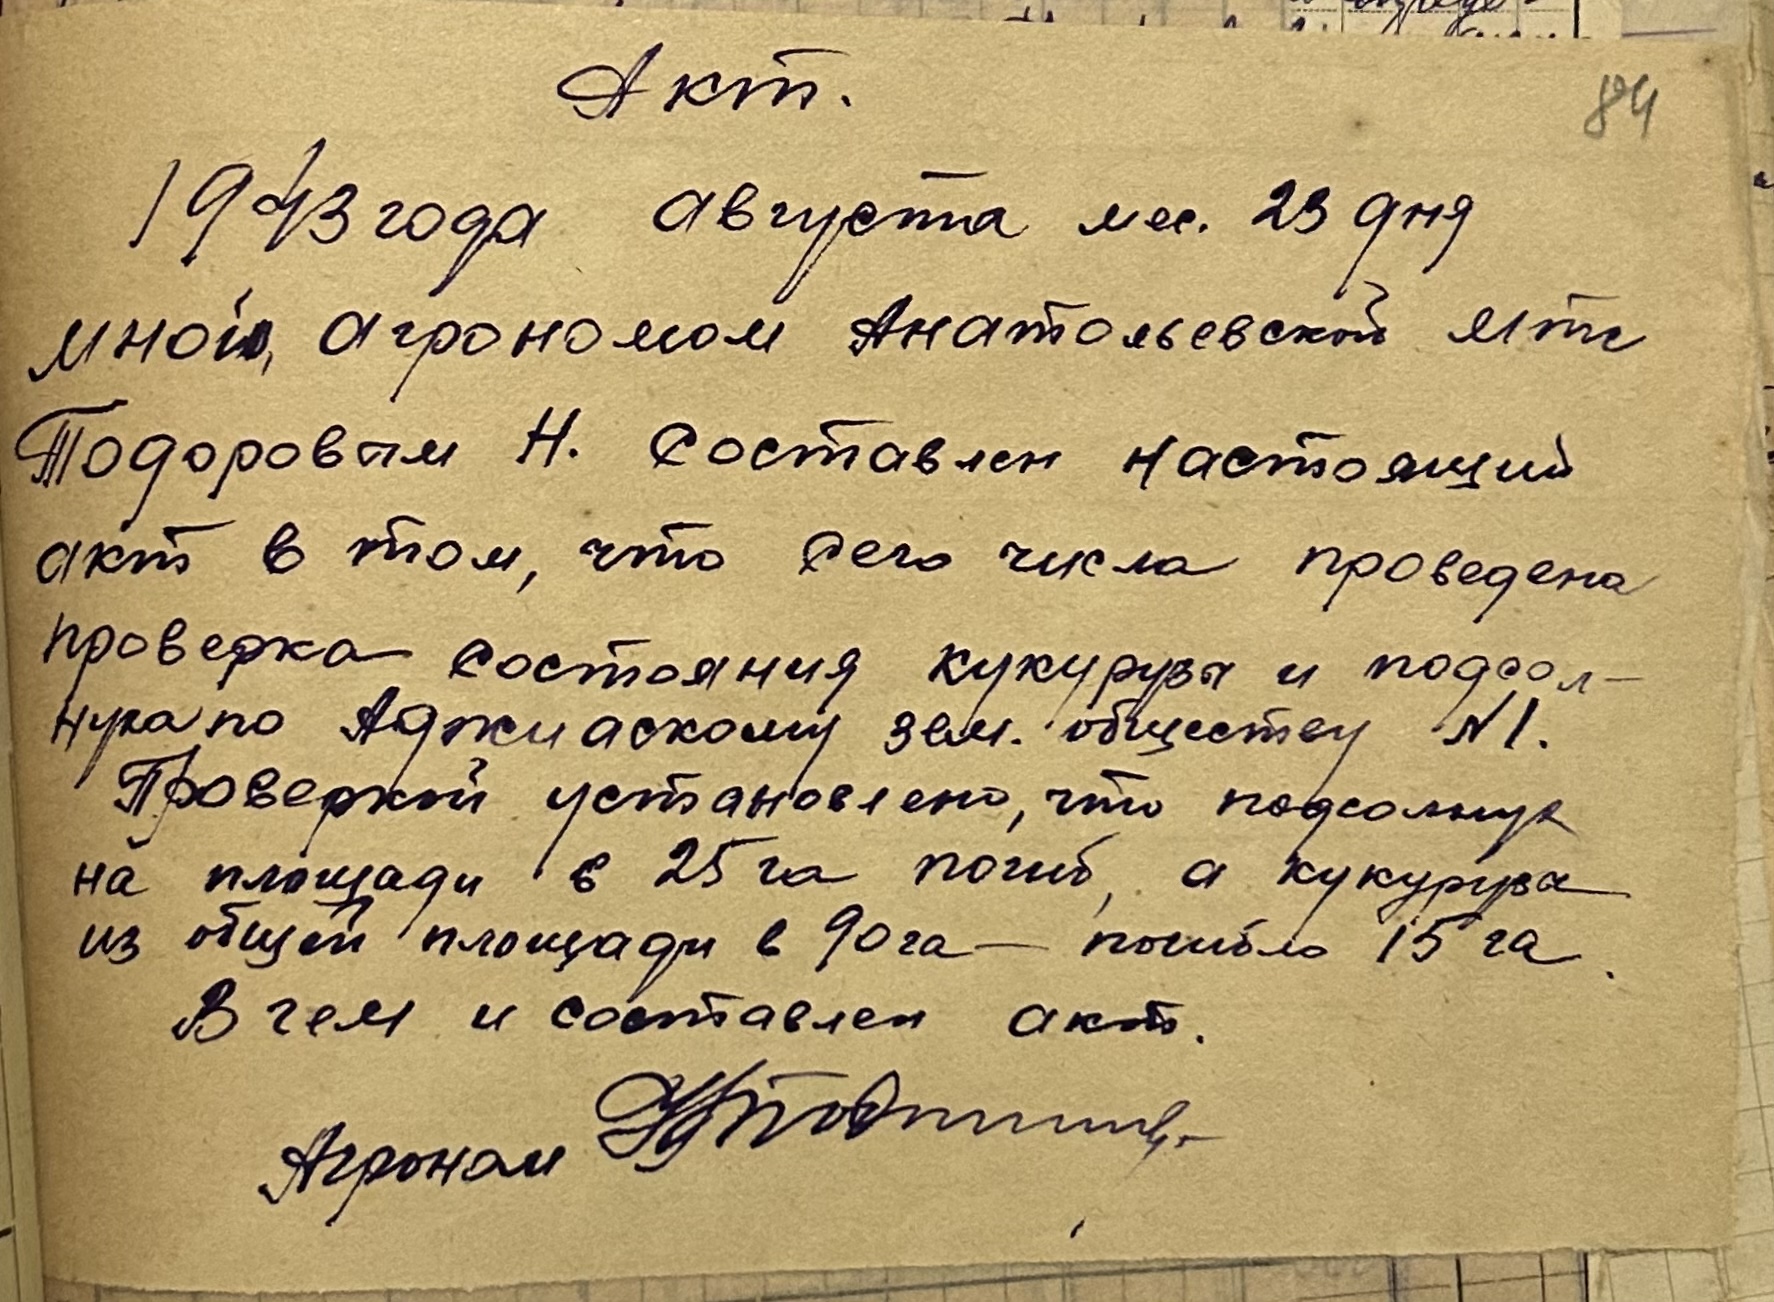 84
Акт.
1943 года августа мес. 23 дня
мной, агрономом Анатольевской МТС
Тодоровым Н. составлен настоящий
акт в том, что сего числа проведена
проверка состояния кукурузы и подсол-
нуха по Аджиаскому зем. обществу N1.
Проверкой установлено, что подсолнух
на площади в 25 га погиб, а кукуруза
из общей площади в 90 га — погибло 15 га.
В чем и составлен акт.
Агроном